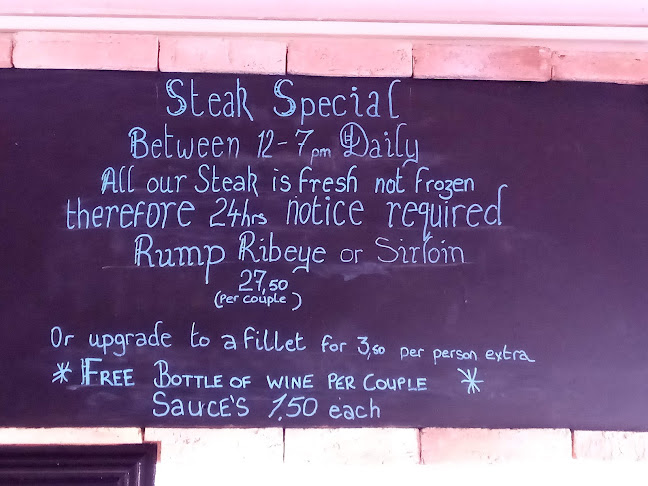 Steak Special
Between 12-7pm Daily
All our Steak is fresh not frozen
therefore 24hrs notice required
Rump Ribeye or Sirloin
27,50
(Per couple)
Or upgrade to a fillet for 3,50 per person extra
* FREE BOTTLE OF WINE PER COUPLE *
SAUCE'S 1,50 each